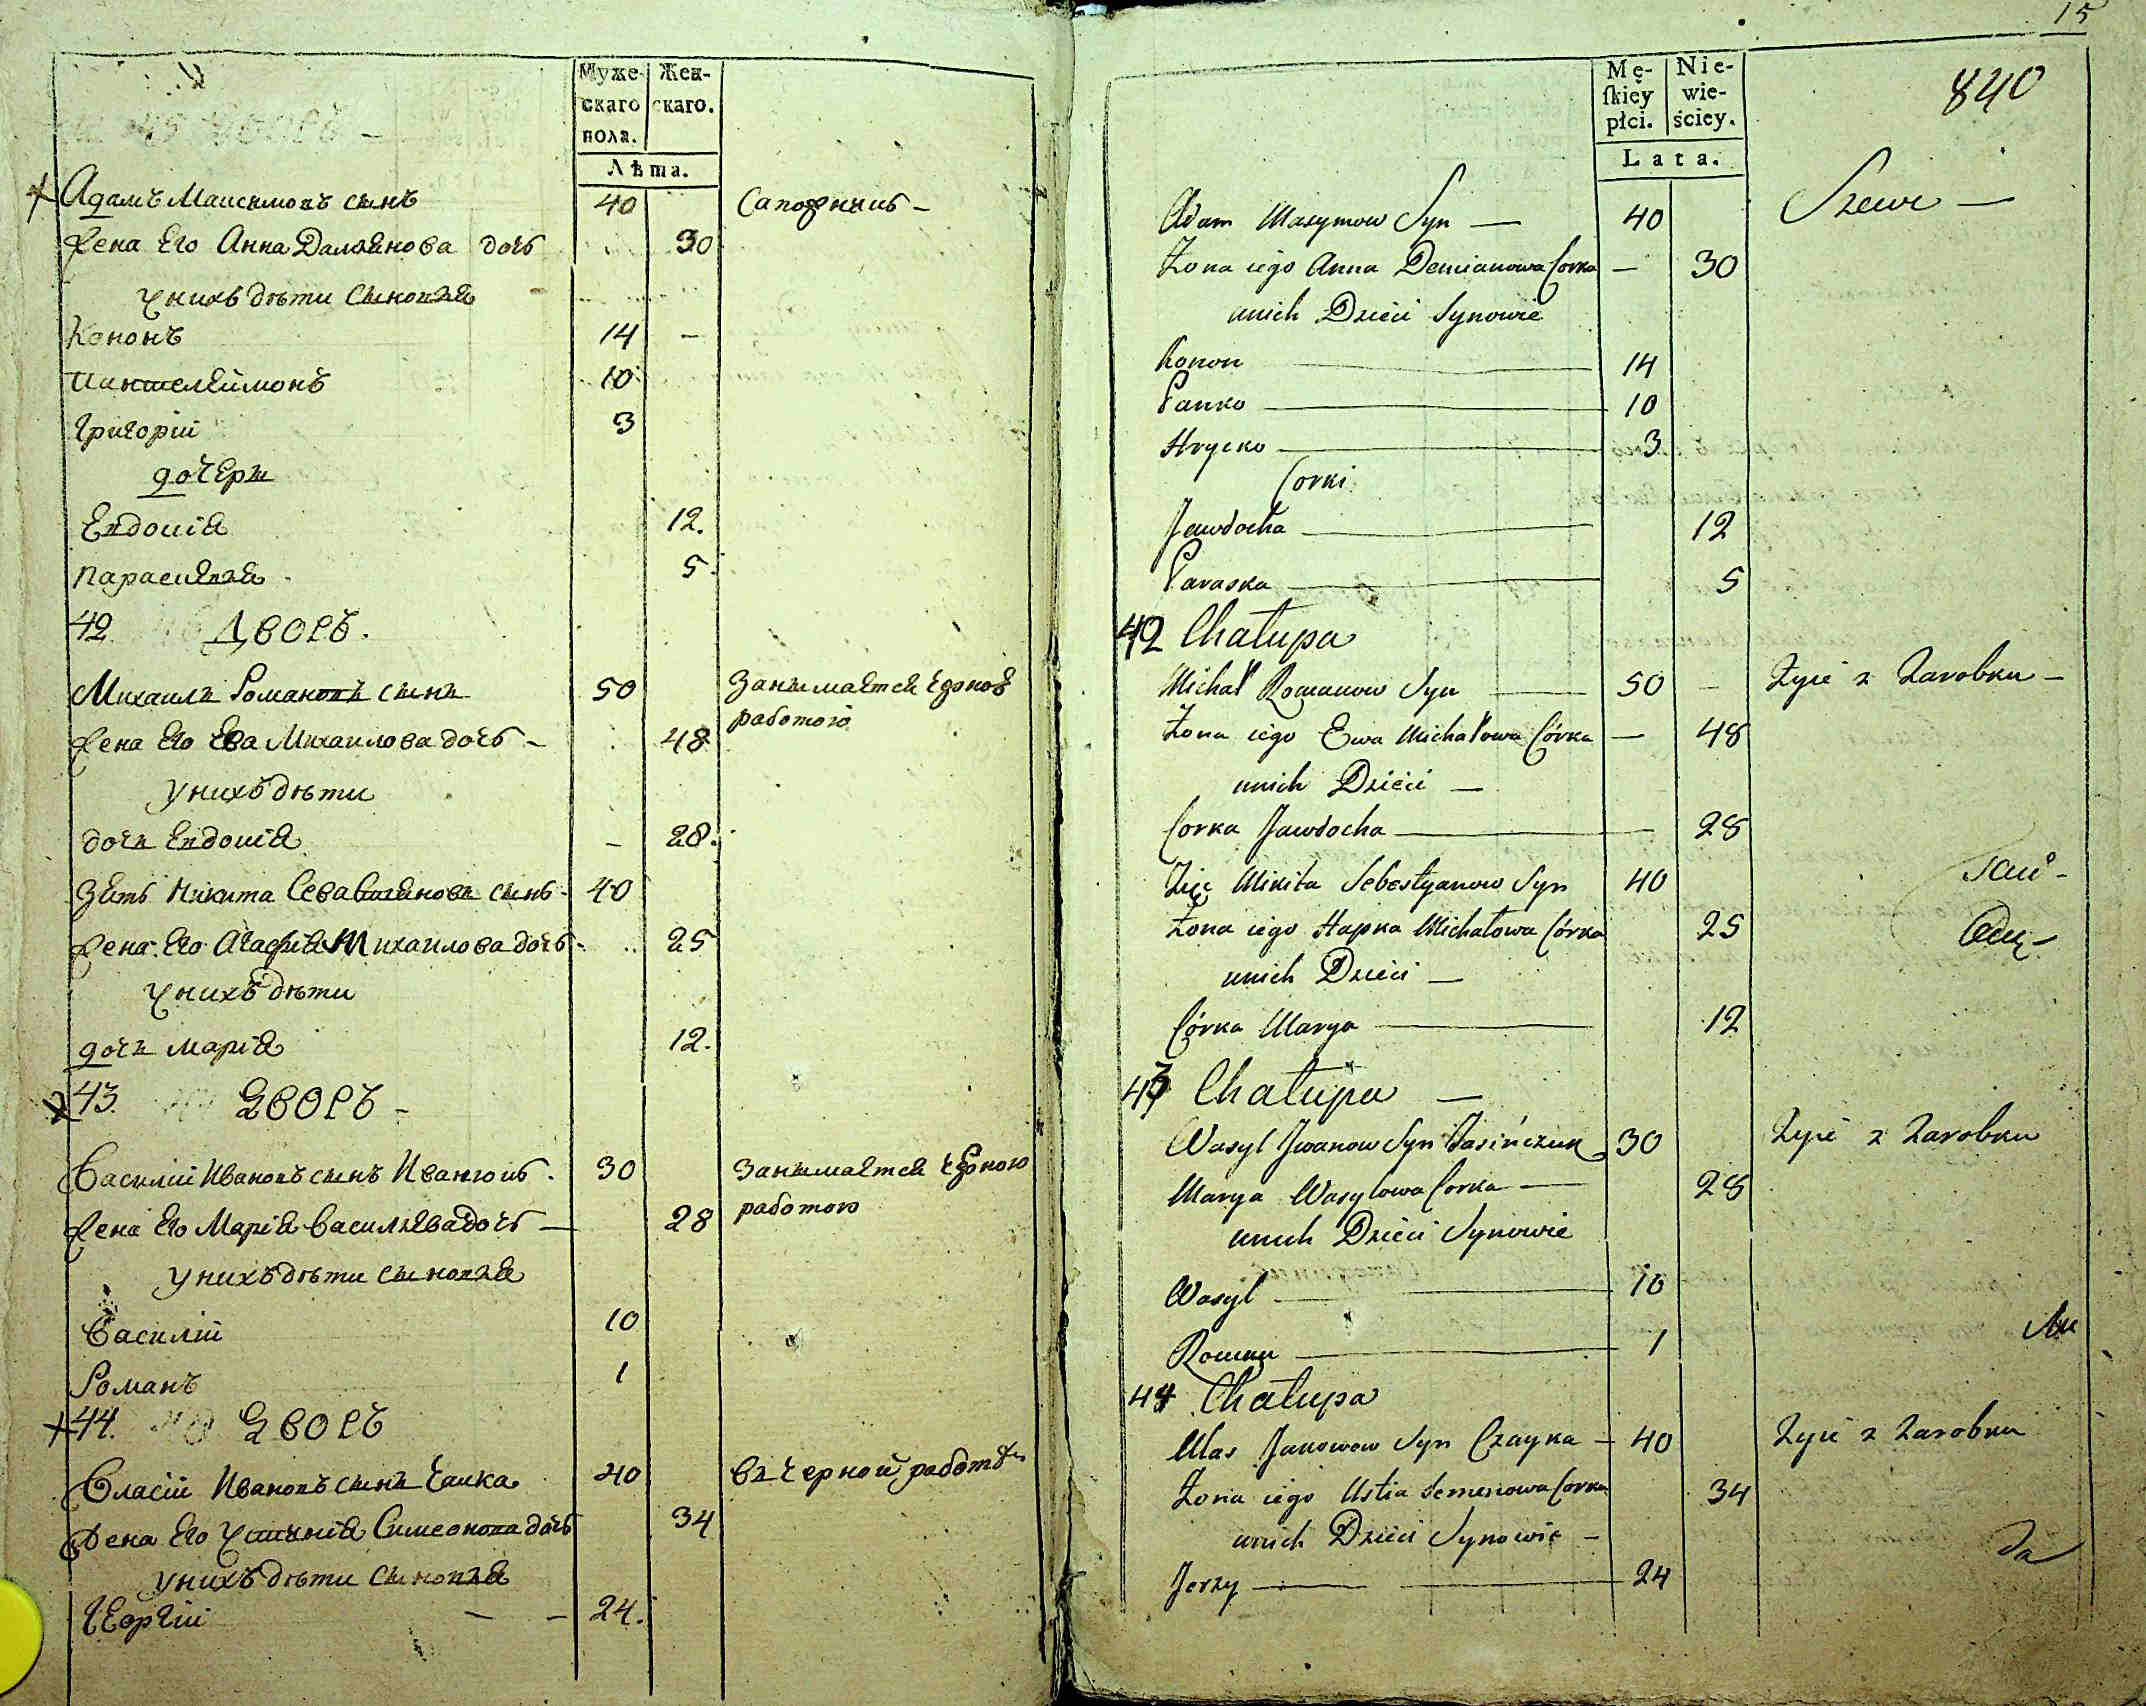 Муже-
скаго
пола.
Жен-
скаго.
Лѣта.
Адамъ Максимовъ сынъ 40 Сапожникъ –
Жена Его Анна Дамянова дочь 30
у нихъ дѣти сыновья
Кононъ 14 –
Пантелеймонъ 10
Григорій 3
дочери
Евдокія 12.
Параскевія 5.
42 Дворъ.
Михаилъ Романовъ сынъ 50 Занимается чорною
работою
Жена Его Ева Михаилова дочь – 48
у нихъ дѣти
дочь Евдокія – 28.
Зять Никита Севастіяновъ сынъ – 40
Жена Его Агафія Михаилова дочь – 25
у нихъ дѣти
дочь Марія 12.
43. Дворъ –
Василій Ивановъ сынъ 30 Занимается чорною
работою
Жена Его Марія Васильева дочь – 28
у нихъ дѣти сыновья
Василій 10
Романъ 1
44. Дворъ
Власій Ивановъ сынъ Чайка 40 въ черной работѣ
Жена Его Симеонова дочь 34
у нихъ дѣти сыновья
Георгій – – 24.
15
840
Mę-
ſkiey
płci.
Nie-
wie-
ściey.
Lata.
Adam Maxymow Syn — 40 Szewc —
Żona iego Anna Demianowa Corka — 30
unich Dzieci Synowie
Konon 14
Panko 10
Hrycko 3
Corki
Jawdocha 12
Paraska 5
42 Chałupa
Michał Romanow Syn — 50 – Żyie z Zarobku –
Żona iego Ewa Michałowa Córka — 48
unich Dzieci —
Corka Jawdocha — 28
Zięć Mikita Sebestyanow Syn 40
Żona iego Hapka Michałowa Córka 25
unich Dzieci —
Córka Marya 12
43 Chałupa —
Wasyl Jwanow Syn Jasińczuk 30 Żyie z Zarobku
Marya Wasylowa Corka — 28
unich Dzieci Synowie
Wasyl 10
Roman 1
44 Chałupa
Ułas Janowow Syn Czayka – 40 Żyie z Zarobku
Żona iego Ustia Semenowa Corka 34
unich Dzieci Synowie –
Jerzy 24